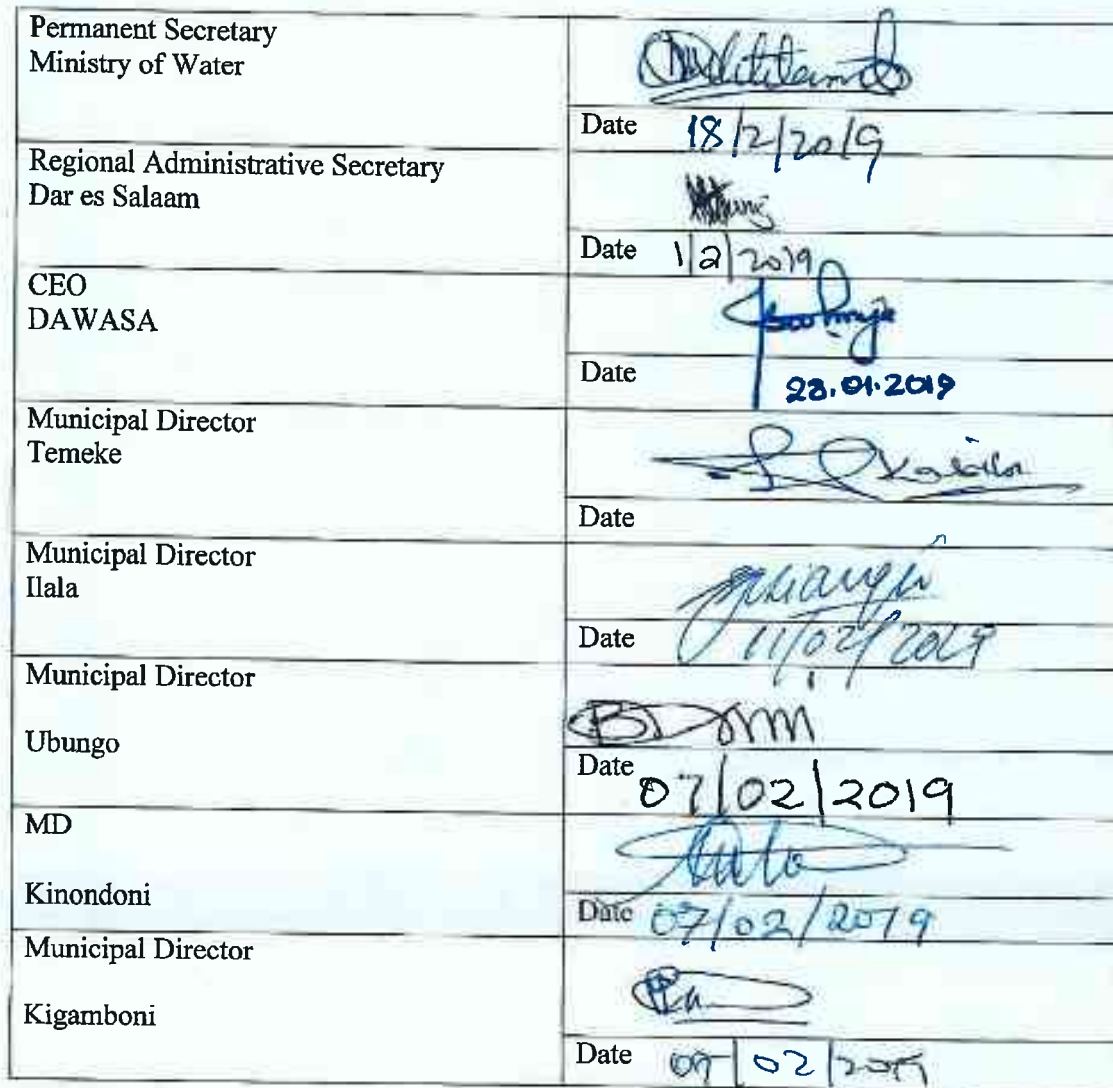 Permanent Secretary
Ministry of Water
Date 18/2/2019
Regional Administrative Secretary
Dar es Salaam
Date 1/2/2019
CEO
DAWASA
Date 28.01.2019
Municipal Director
Temeke
Date
Municipal Director
Ilala
Date 11/02/2019
Municipal Director
Ubungo
Date 07/02/2019
MD
Kinondoni
Date 07/02/2019
Municipal Director
Kigamboni
Date 07/02/2019